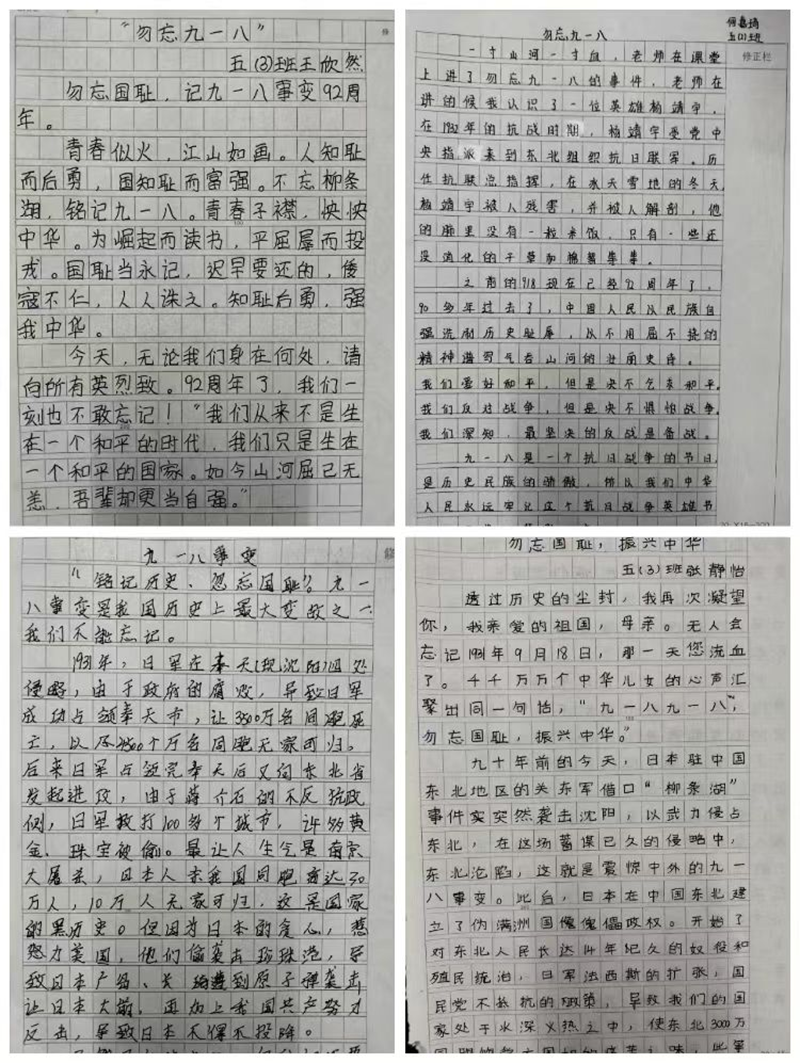 "勿忘九一八"
五(3)班王欣然
勿忘国耻，记九一八事变92周
年。
青春似火，江山如画。人知耻
而后勇，国知耻而富强。不忘柳条
湖，铭记九一八。青春子襟，怏怏
中华。为崛起而读书，平屈辱而投
戎。国耻当永记，迟早要还的，倭
寇不仁，人人诛之。知耻后勇，强
我中华。
今天，无论我们身在何处，请
向所有英烈致。92周年了，我们一
刻也不敢忘记！"我们从来不是生
在一个和平的时代，我们只是生在
一个和平的国家。如今山河屈已无
恙，吾辈却更当自强。"
五(3)班
勿忘九一八
修正栏
一寸山河一寸血，老师在课堂
上讲了勿忘九一八的事件，老师在
讲的候我认识了一位英雄杨靖宇，
在1932年的抗战时期，杨靖宇受党中
央指派来到东北组织抗日联军。历
任抗联总指挥，在冰天雪地的冬天
杨靖宇被人残害，并被人解剖，他
的肠里没有一粒米饭，只有一些还
没消化的干草和棉絮等等。
之前的918现在已经92周年了，
90多年过去了，中国人民以民族自
强洗刷历史耻辱，从不用屈不挠的
精神谱写气吞山河的壮丽史诗。
我们爱好和平，但是决不乞求和平，
我们反对战争，但是决不惧怕战争。
我们深知，最坚决的反战是备战。
九一八是一个抗日战争的节日，
是历史民族的骄傲，所以我们中华
人民永远牢记这个抗日战争英雄节
九一八事变
"铭记历史、忽忘国耻"。九一
八事变是我国历史上最大变故之一
我们不能忘记。
1931年，日军在奉天(现沈阳)四处
侵略，由于政府的腐败，导致日军
成功占领奉天市，让3500万名同胞死
亡，以及2500个万名同胞无家可归。
后来日军占领完奉天后又向东北省
发起进攻，由于蒋介石的不反抗政
例，日军被打100多个城市，许多黄
金、珠宝被偷。最让人生气是南京
大屠杀，日本人杀我国同胞高达30
万人，10万人无家可归，这是国家
的黑历史。但因为日本的贪心，惹
怒力美国，他们偷袭击珍珠港，导
致日本广岛、长 遭到原子弹袭击
让日本大崩，再加上我国共产努力
反击，导致日本不得不投降。
勿忘国耻，振兴中华
五(3)班张静怡
透过历史的尘封，我再次凝望
你，我亲爱的祖国，母亲。无人会
忘记1931年9月18日，那一天您流血
了。千千万万个中华儿女的心声汇
聚出同一句话，"九一八九一八，
勿忘国耻，振兴中华。"
九十年前的今天，日本驻中国
东北地区的关东军借口"柳条湖"
事件实突然袭击沈阳，以武力侵占
东北，在这场蓄谋已久的侵略中，
东北沦陷，这就是震惊中外的九一
八事变。此后，日本在中国东北建
立了伪满洲国傀傀儡政权。开始了
对东北人民长达14年纪久的奴役和
殖民统治，日军法西斯的扩张，国
民党不抵抗的政策，导致我们的国
家处于水深火热之中，使东北3000万